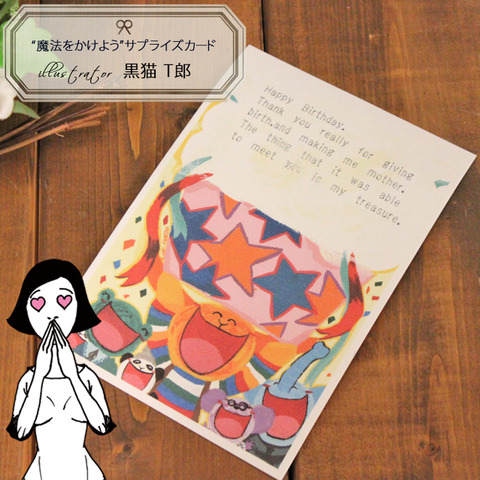 “魔法をかけよう”サプライズカード
illustrator 黒猫 T郎
Happy Birthday.
Thank you really for giving
birth.and making me mother.
The thing that it was able
to meet you is my treasure.